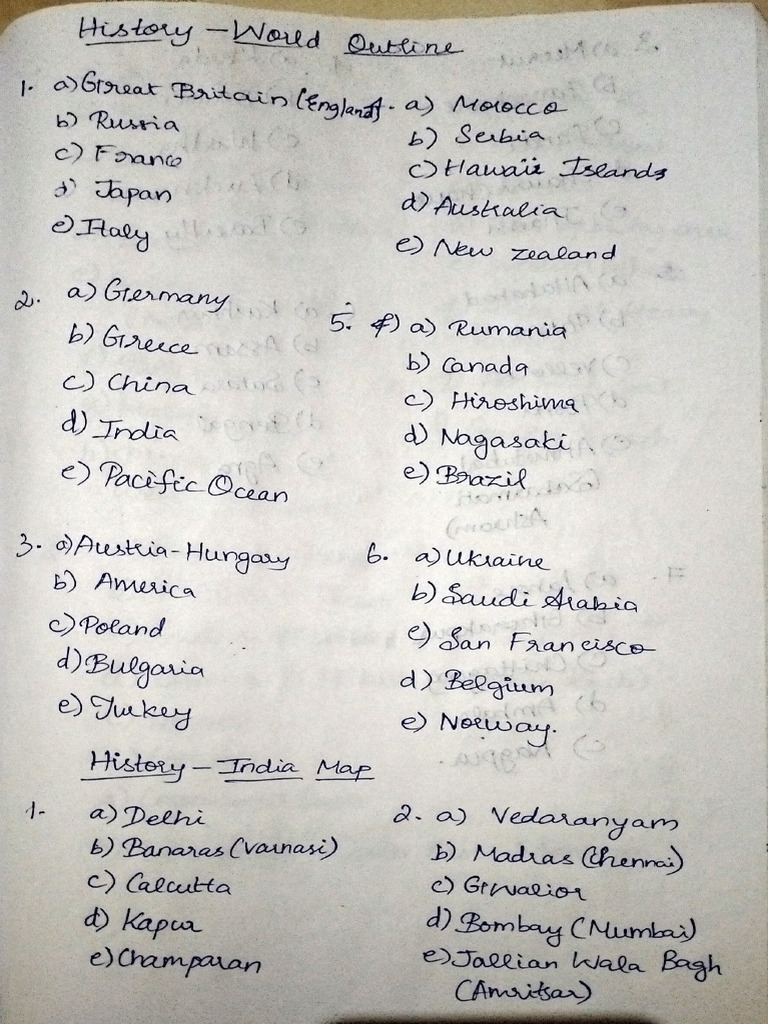 History - World Outline
1. a) Great Britain (England)
b) Russia
c) France
d) Japan
e) Italy
4. a) Morocco
b) Serbia
c) Hawaii Islands
d) Australia
e) New zealand
2. a) Germany
b) Greece
c) China
d) India
e) Pacific Ocean
5. a) Rumania
b) Canada
c) Hiroshima
d) Nagasaki
e) Brazil
3. a) Austria-Hungary
b) America
c) Poland
d) Bulgaria
e) Turkey
6. a) Ukraine
b) Saudi Arabia
c) San Francisco
d) Belgium
e) Norway.
History - India Map
1. a) Delhi
b) Banaras (Varnasi)
c) Calcutta
d) Kapur
e) Champaran
2. a) Vedaranyam
b) Madras (Chennai)
c) Gwalior
d) Bombay (Mumbai)
e) Jallian Wala Bagh
(Amritsar)